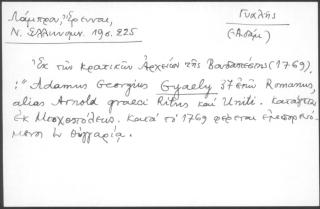 Λάμπρου, Ἔρευναι,
Ν. Ἑλληνομν. 19ος. 225
Γυαλής
(-Αδάμ)
Ἐκ τῶν κρατικῶν Ἀρχείων τῆς Βουδαπέστης (1769).
:" Adamus Georgius Gyaely 37 ἐτῶν Romanus,
alias Arnold graeci Ritus καί Uniti. Κατάγεται
ἐκ Μοσχοπόλεως. Κατά τό 1769 φέρεται ἐμπορευό-
μενος ἐν Οὑγγαρίᾳ.